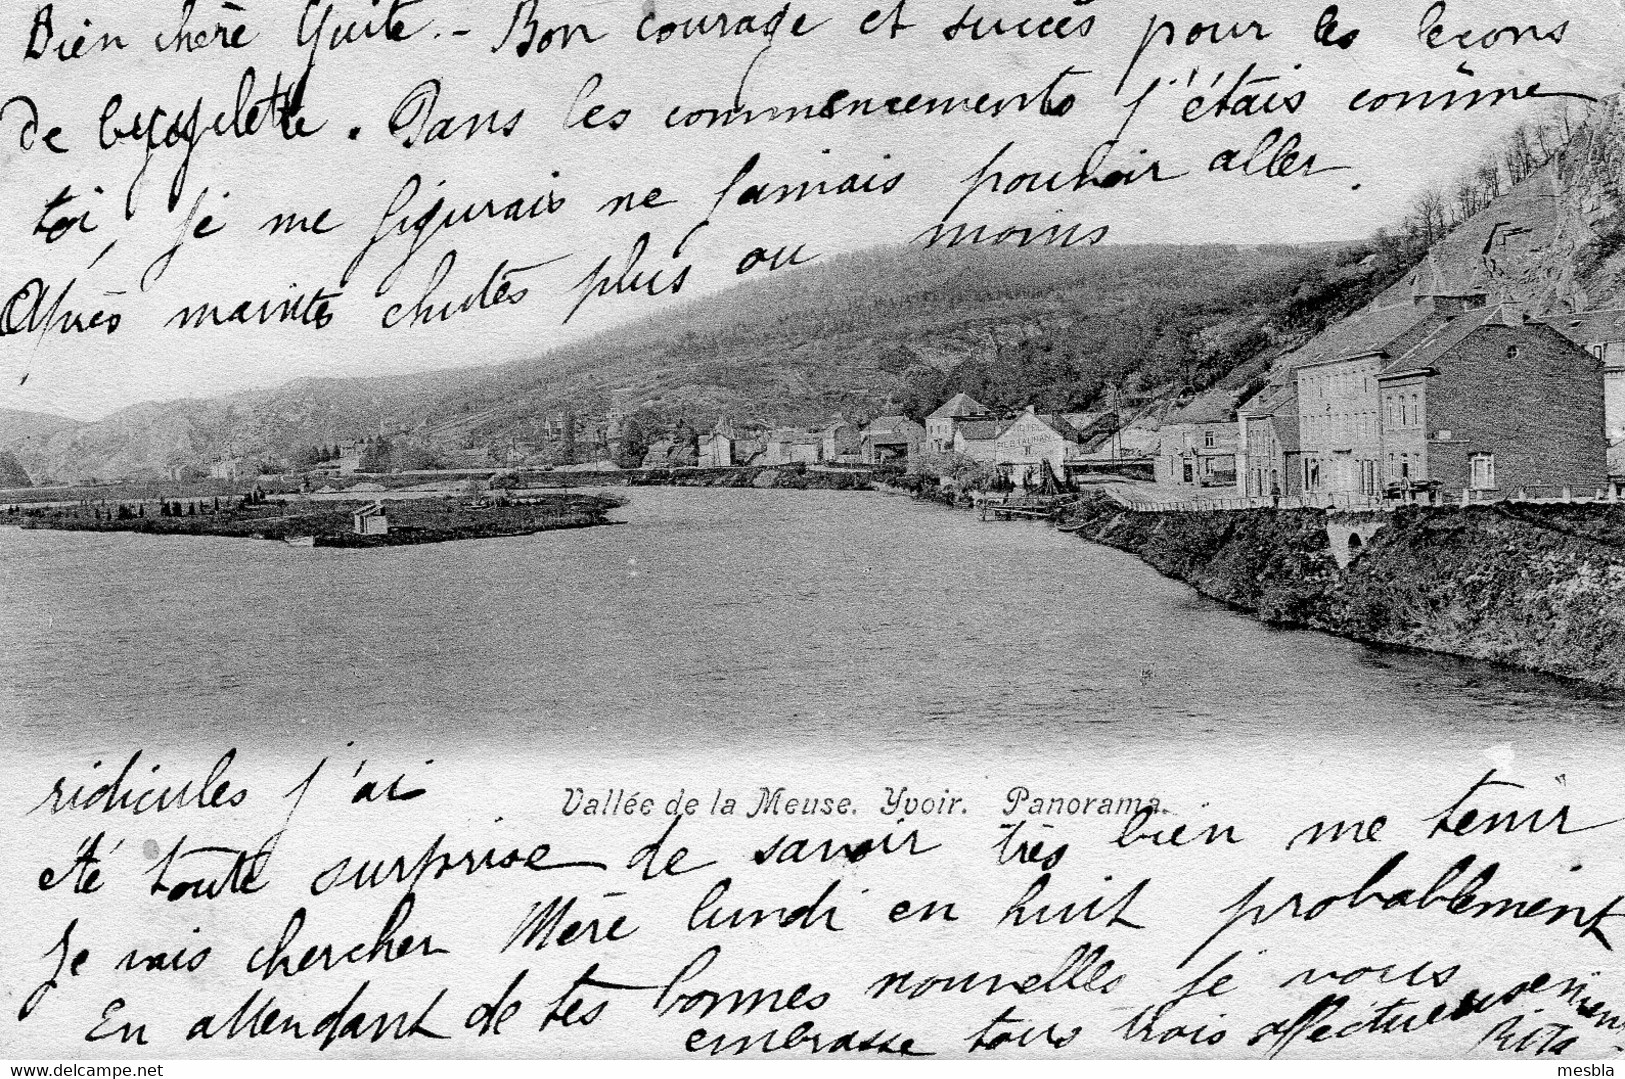 Bien chère Guite. – Bon courage et succès pour les leçons
de bicyclette. Dans les commencements j'étais comme
toi, je me figurais ne jamais pouvoir aller.
Après maintes chutes plus ou moins
ridicules j'ai
Vallée de la Meuse. Yvoir. Panorama.
été toute surprise de savoir très bien me tenir
Je vais chercher Mère lundi en huit probablement
En attendant de tes bonnes nouvelles je vous
embrasse tous trois affectueusement
Rita
delcampe.net
mesbla